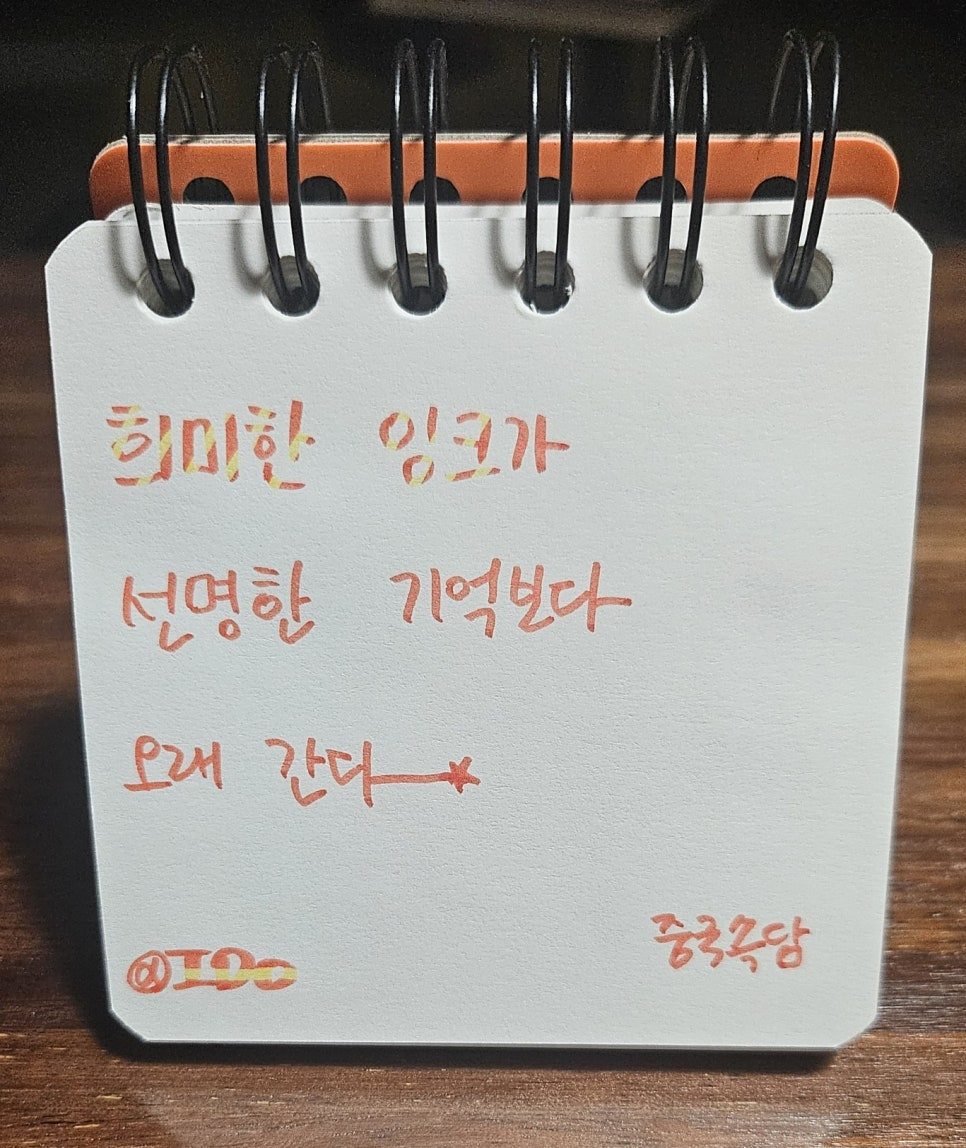 희미한 잉크가
선명한 기억보다
오래 간다
중국속담
@IDO